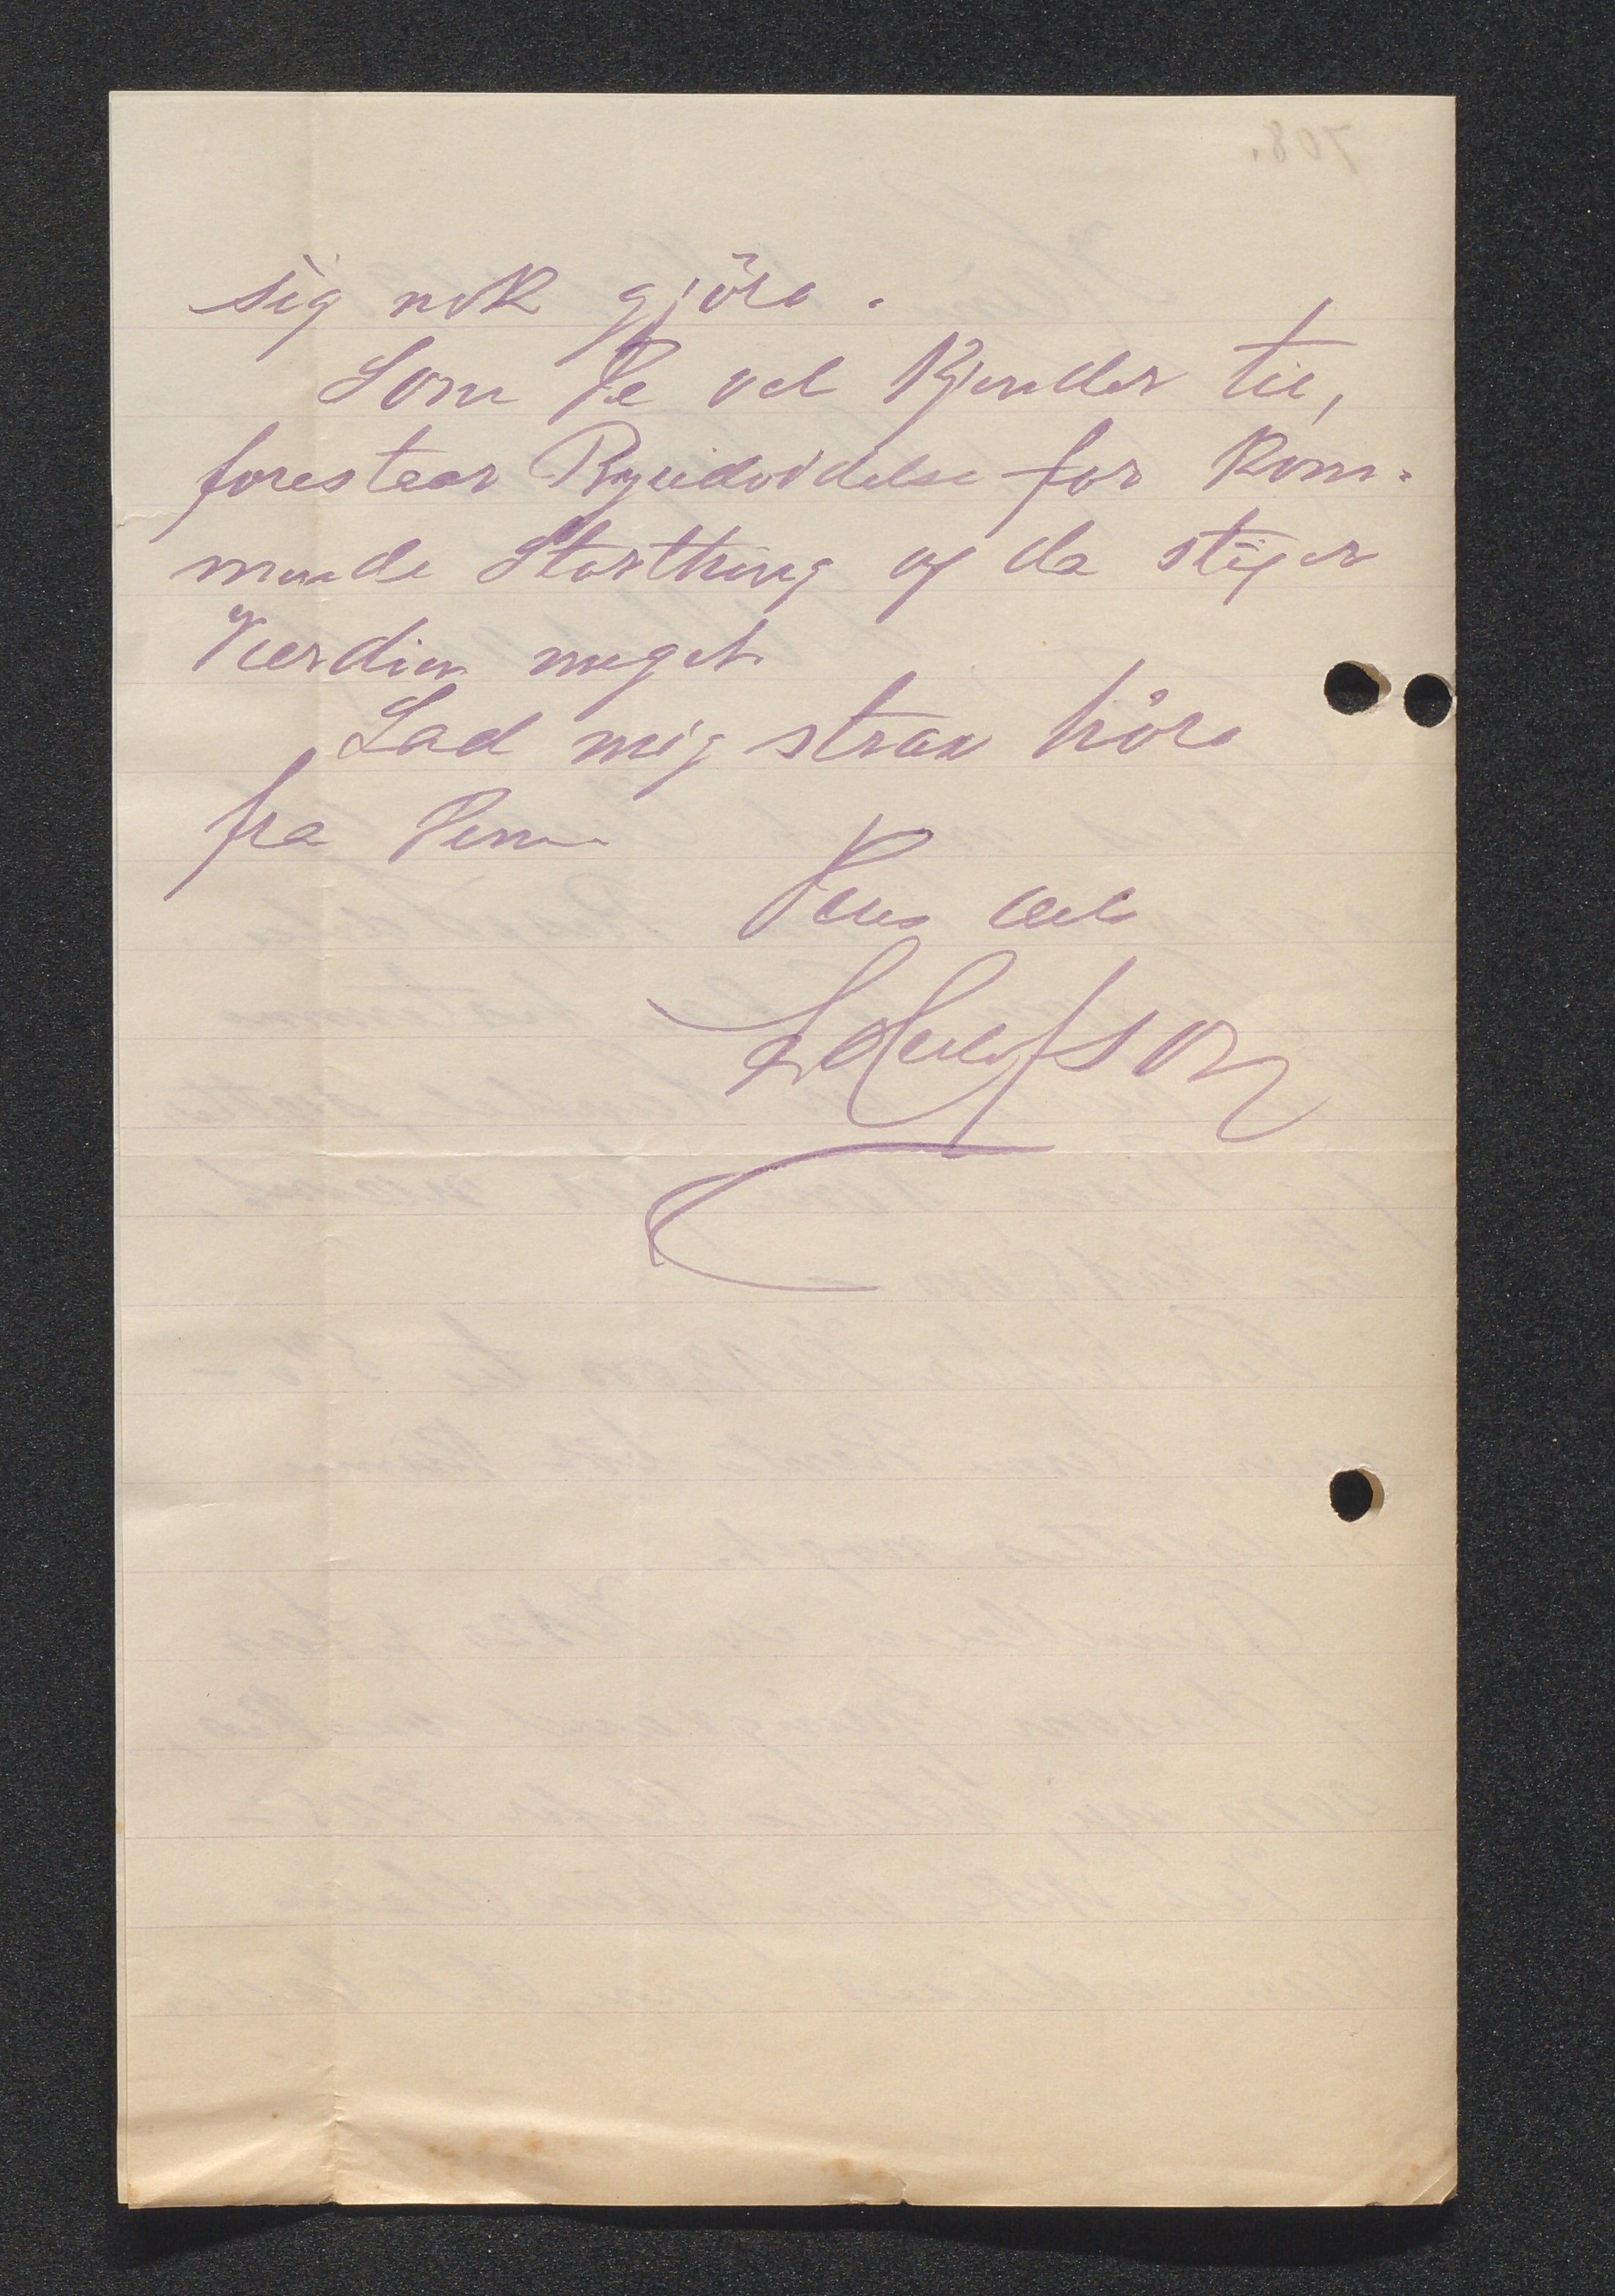 sig nok gjöre.
Som De vel kjender til,
forestaar Byudvidelse for kom-
mende Storthing og da stiger
Værdien meget
Lad mig strax höre
fra Dem
Deres